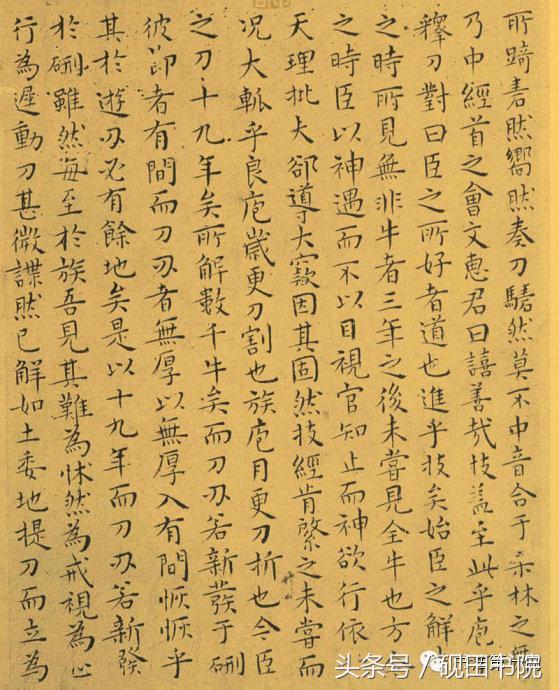 所踦砉然嚮然奏刀騞然莫不中音合于桑林之舞
乃中經首之會文惠君曰譆善哉技蓋至此乎庖
釋刀對曰臣之所好者道也進乎技矣始臣之解
之時所見無非牛者三年之後未嘗見全牛也方
之時臣以神遇而不以目視官知止而神欲行依
天理批大郤導大窾因其固然技經肯綮之未嘗而
况大軱乎良庖歲更刀割也族庖月更刀折也今臣
之刀十九年矣所解數千牛矣而刀刃若新發于硎
彼節者有間而刀刃者無厚以無厚入有間恢恢乎
其於遊刃必有餘地矣是以十九年而刀刃若新發
於硎雖然每至於族吾見其難為怵然為戒視為止
行為遲動刀甚微謋然已解如土委地提刀而立為
头条号／砚田书院